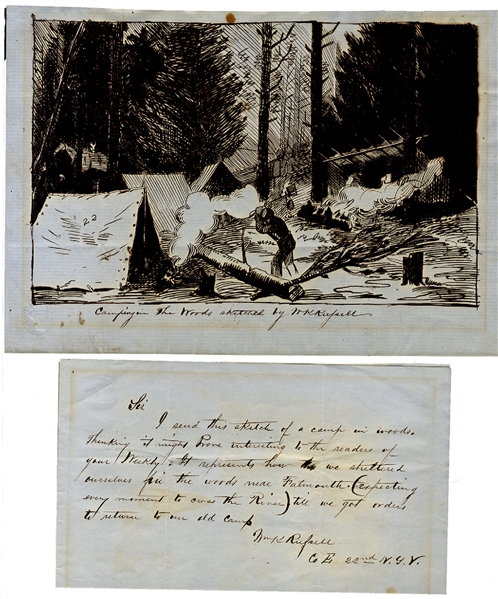 22
Camping in the Woods sketched by W K Rufsell
Sir
I send this sketch of a camp in woods.
thinking it might Prove interesting to the readers of
your Weekly. It represents how we sheltered
ourselves in the woods near Falmouth (expecting
every moment to cross the River) till we got orders
to return to our old camp
Wm K Rufsell
Co E 22nd N.Y.V.